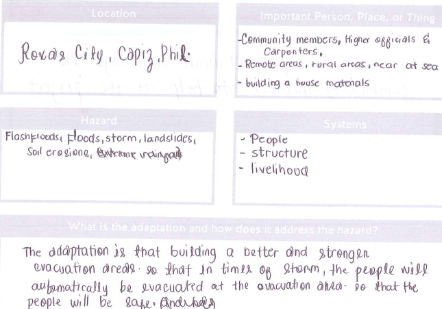 Location
Roxas City, Capiz, Phil.
Important Person, Place, or Thing
-Community members, Higher officials &
Carpenters,
- Remote areas, rural areas, near at sea
- building a house materials
Hazard
Flashfloods, floods, storm, landslides,
Soil erosions,
Systems
- People
- structure
- livelihood
What is the adaptation and how does it address the hazard?
The adaptation is that building a better and stronger
evacuation areas. so that in times of storm, the people will
automatically be evacuated at the evacuation area. so that the
people will be safe.